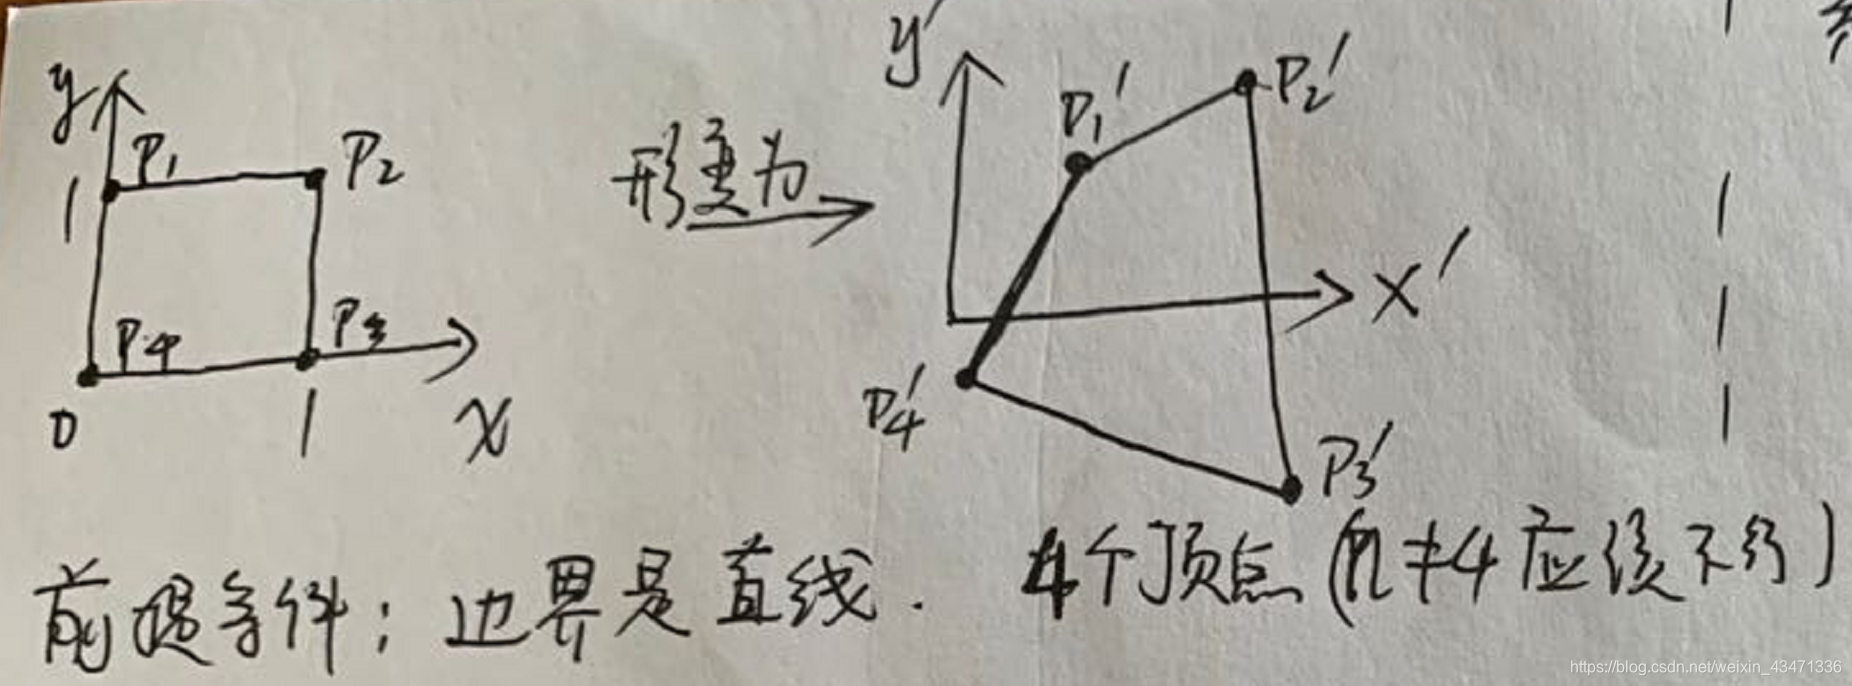 y
P1
P2
1
P4
P3
0
1
x
形变为
y'
P1'
P2'
x'
P4'
P3'
前提条件：边界是直线． 4个顶点（n≠4应该不行）
https://blog.csdn.net/weixin_43471336